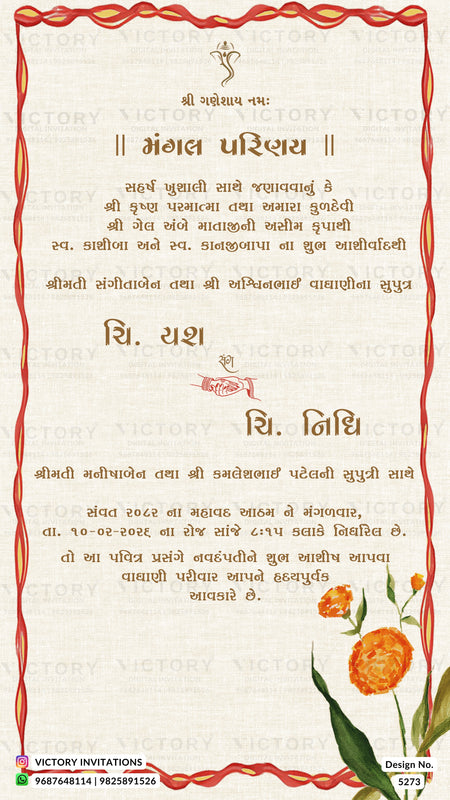 શ્રી ગણેશાય નમઃ
|| મંગલ પરિણય ||
સહર્ષ ખુશાલી સાથે જણાવવાનું કે
શ્રી કૃષ્ણ પરમાત્મા તથા અમારા કુળદેવી
શ્રી ગેલ અંબે માતાજીની અસીમ કૃપાથી
સ્વ. કાશીબા અને સ્વ. કાનજીબાપા ના શુભ આશીર્વાદથી
શ્રીમતી સંગીતાબેન તથા શ્રી અશ્વિનભાઈ વાઘાણીના સુપુત્ર
ચિ. યશ
સંગ
ચિ. નિધિ
શ્રીમતી મનીષાબેન તથા શ્રી કમલેશભાઈ પટેલની સુપુત્રી સાથે
સંવત ૨૦૮૨ ના મહાવદ આઠમ ને મંગળવાર,
તા. ૧૦-૦૨-૨૦૨૬ ના રોજ સાંજે ૮:૧૫ કલાકે નિર્ધારેલ છે.
તો આ પવિત્ર પ્રસંગે નવદંપતીને શુભ આશીષ આપવા
વાઘાણી પરીવાર આપને હૃદયપુર્વક
આવકારે છે.
VICTORY INVITATIONS
9687648114 | 9825891526
Design No.
5273